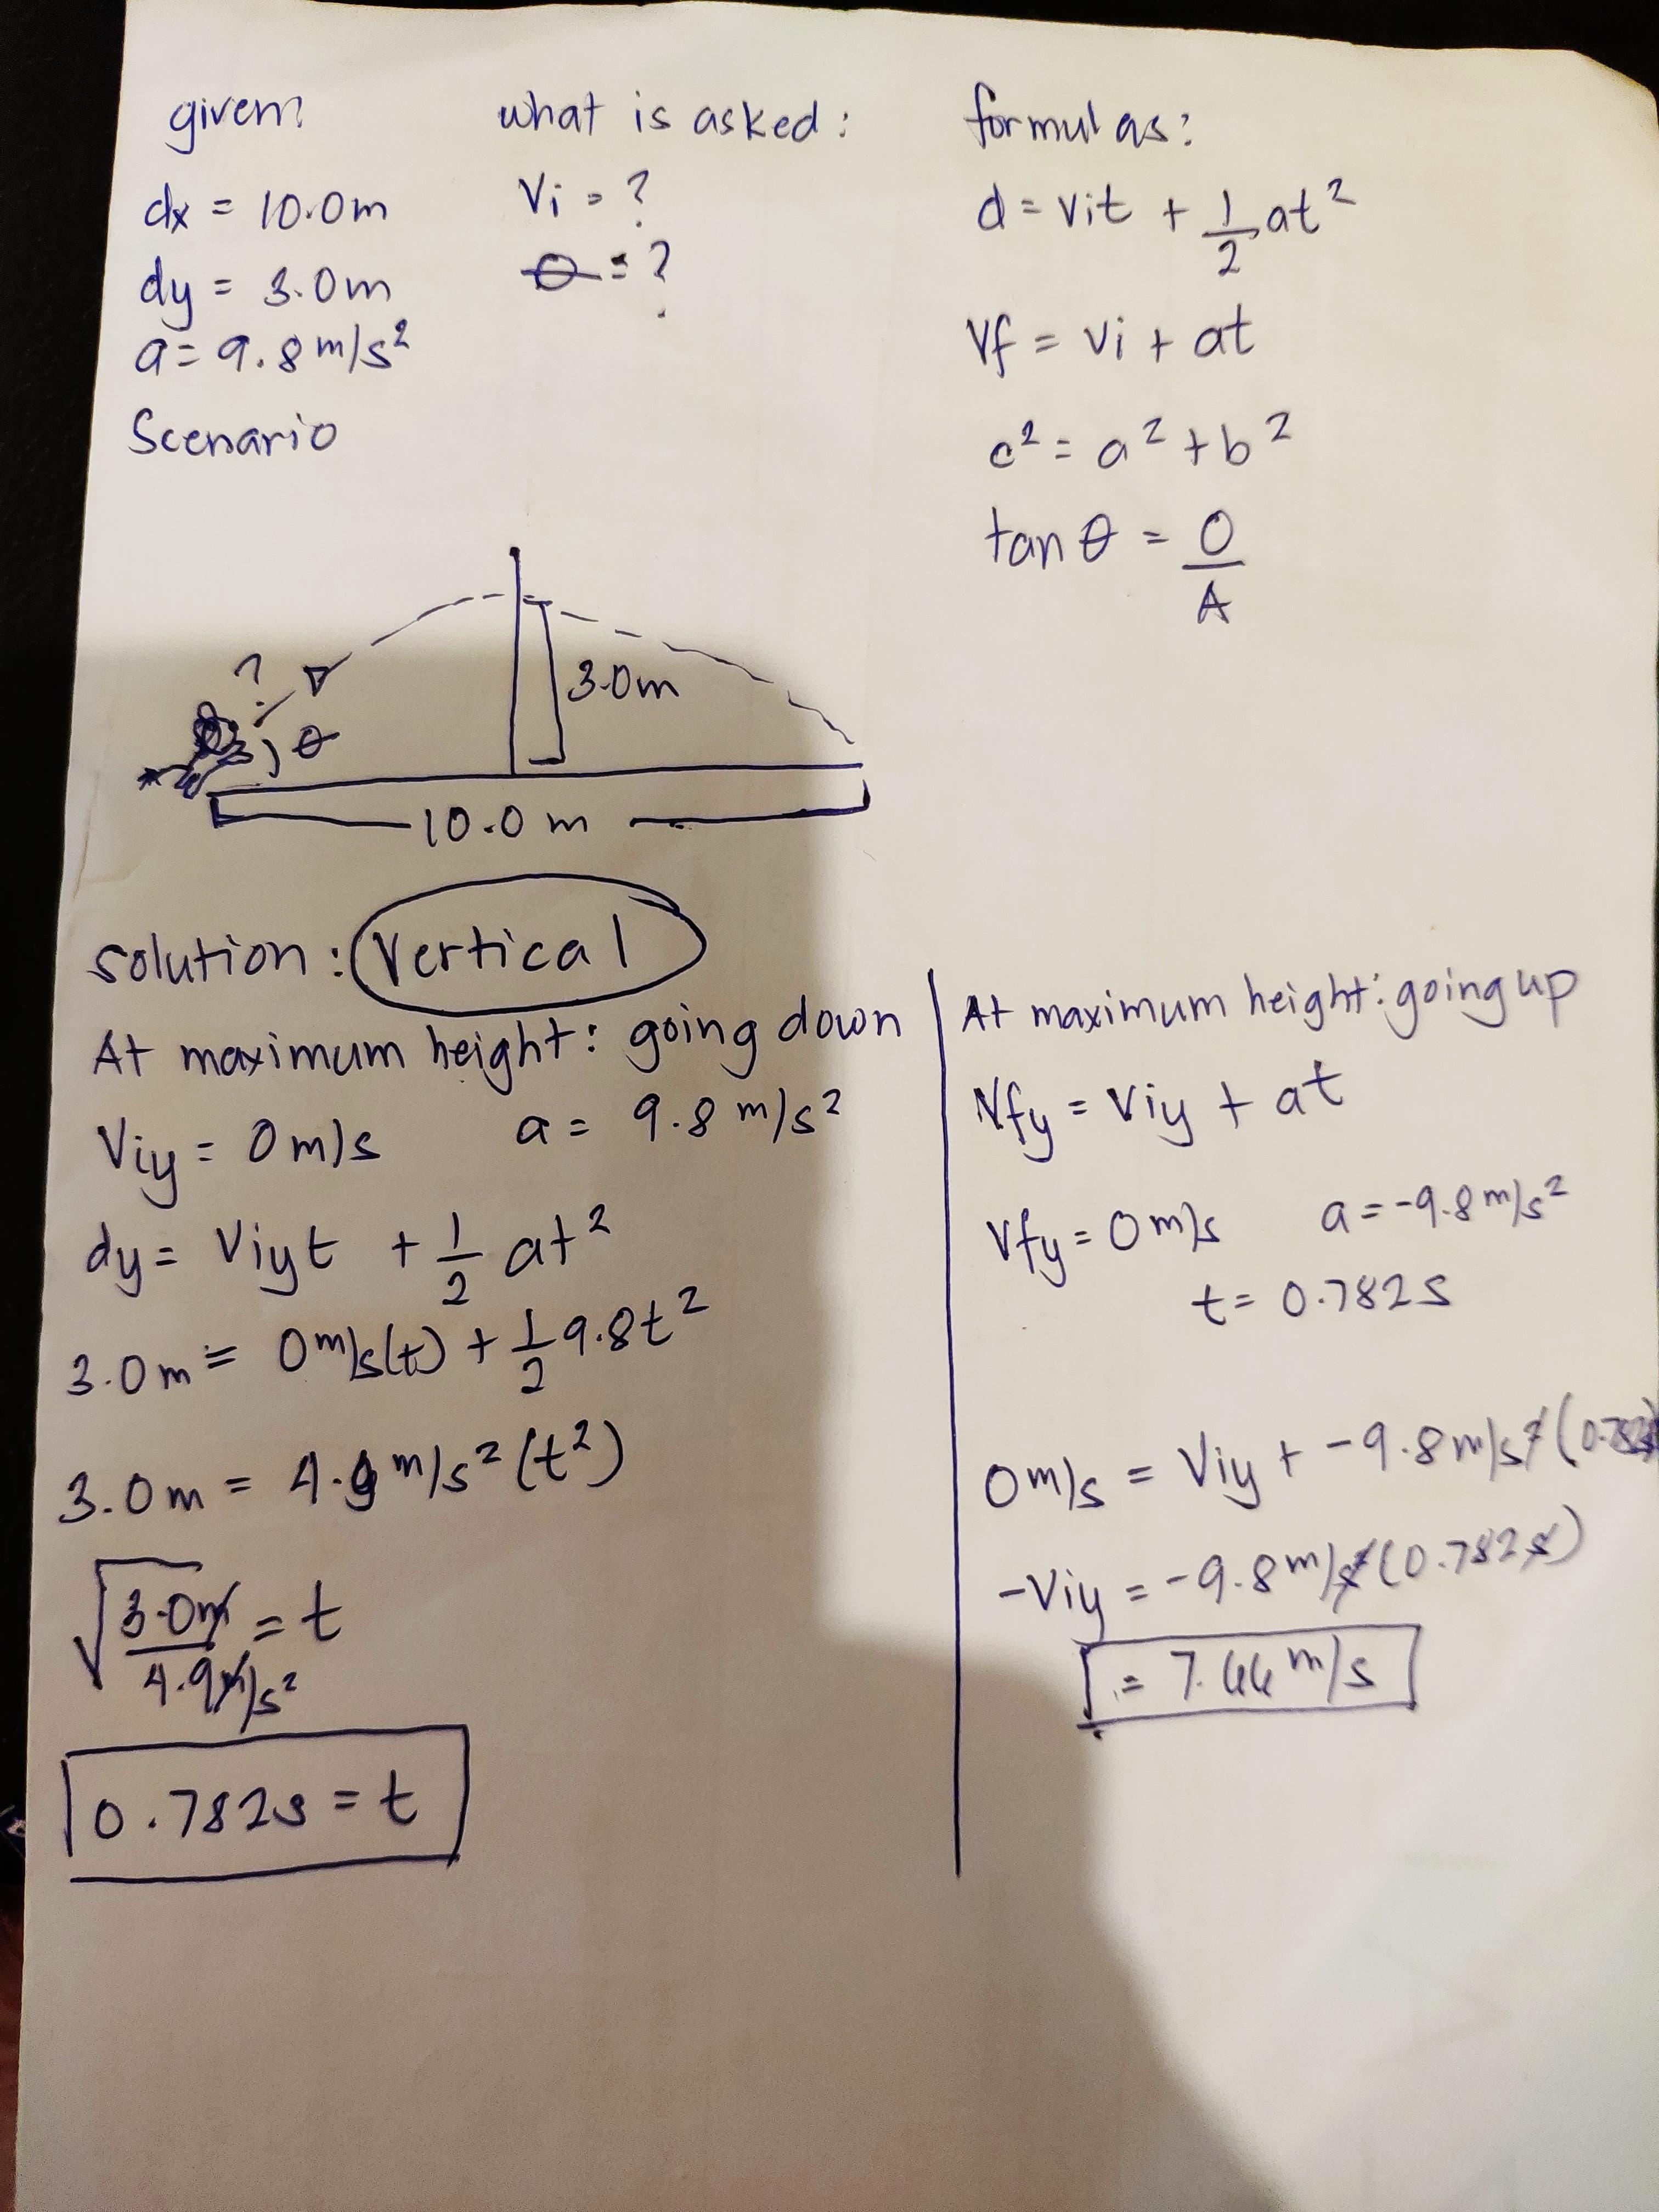 given:
dx = 10.0m
dy = 3.0m
a = 9.8 m/s²
what is asked:
Vi = ?
θ = ?
formulas:
d = vit + 1/2 at²
Vf = Vi + at
c² = a² + b²
tan θ = O/A
Scenario
?
θ
3.0m
10.0 m
solution: Vertical
At maximum height: going down
Viy = 0 m/s a = 9.8 m/s²
dy = Viyt + 1/2 at²
3.0m = 0 m/s(t) + 1/2 9.8t²
3.0m = 4.9 m/s² (t²)
√3.0m/4.9m/s² = t
0.782s = t
At maximum height: going up
Vfy = Viy + at
Vfy = 0 m/s a = -9.8 m/s²
t = 0.782s
0 m/s = Viy + -9.8 m/s² (0.782s)
-Viy = -9.8 m/s² (0.782s)
= 7.66 m/s